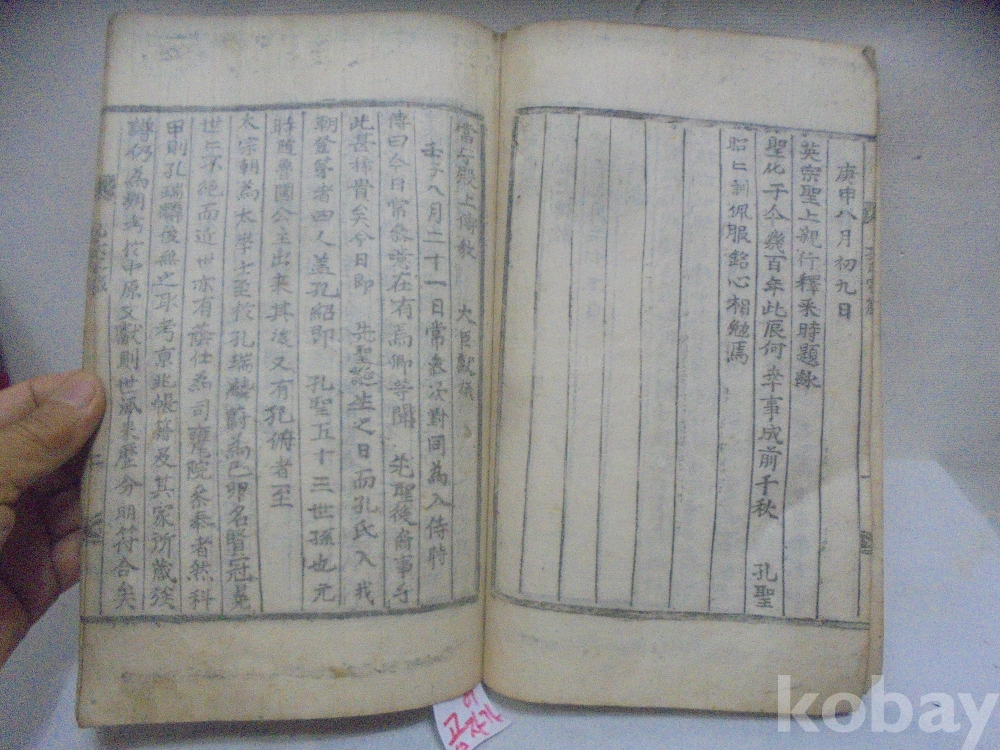 庚申八月初九日
英宗聖上親行釋采時題詠
聖化于今幾百年此辰何幸事成前千秋 孔聖
昭仁刻佩服銘心相勉焉
當 殿上傳敎 大臣獻議
壬子八月二十一日常參次對同爲入侍時
傳曰今日常參 在有焉卿等聞 先聖後裔事乎
此甚稀貴矣今日即 先聖誕生之日而孔氏入我
朝登筵者四人盖孔紹即 孔聖五十三世孫也元
時隨魯國公主出來其後又有孔俯者至
太宗朝爲太學士至於孔瑞麟蔚爲己卯名賢冠冕
世世不絶而近世亦有蔭仕爲司甕院參奉者然科
甲則孔瑞麟後無之耳考京兆帳籍及其家所藏族
譜仍爲 考於中原文獻則世派来歷分明符合矣
kobay